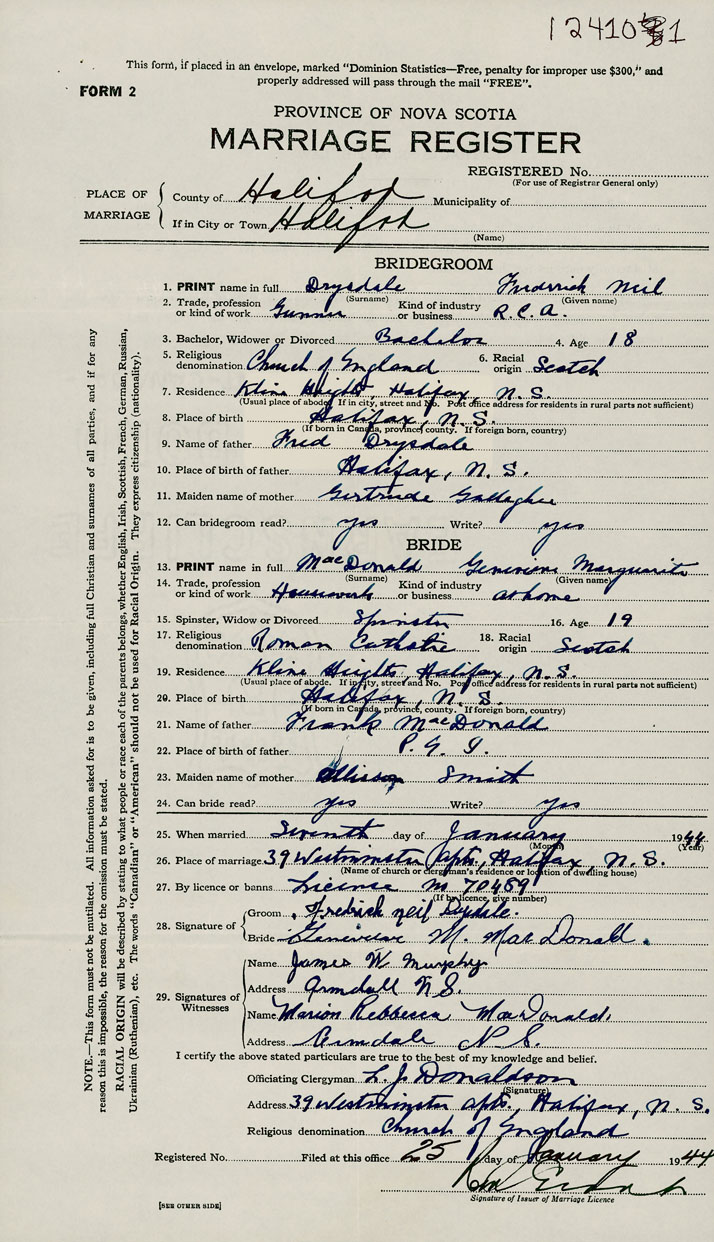 124101
This form, if placed in an envelope, marked "Dominion Statistics—Free, penalty for improper use $300," and
properly addressed will pass through the mail "FREE".
FORM 2
PROVINCE OF NOVA SCOTIA
MARRIAGE REGISTER
REGISTERED No.
(For use of Registrar General only)
PLACE OF MARRIAGE
County of Halifax Municipality of
If in City or Town Halifax
(Name)
BRIDEGROOM
1. PRINT name in full Drysdale Frederick Neil
(Surname) (Given name)
2. Trade, profession or kind of work Gunner Kind of industry or business R.C.A.
3. Bachelor, Widower or Divorced Bachelor 4. Age 18
5. Religious denomination Church of England 6. Racial origin Scotch
7. Residence Kline Heights, Halifax, N.S.
(Usual place of abode. If in city, street and No. Post office address for residents in rural parts not sufficient)
8. Place of birth Halifax, N.S.
(If born in Canada, province, county. If foreign born, country)
9. Name of father Fred Drysdale
10. Place of birth of father Halifax, N.S.
11. Maiden name of mother Gertrude Gallagher
12. Can bridegroom read? yes Write? yes
BRIDE
13. PRINT name in full MacDonald Marguerite
(Surname) (Given name)
14. Trade, profession or kind of work Housework Kind of industry or business at home
15. Spinster, Widow or Divorced Spinster 16. Age 19
17. Religious denomination Roman Catholic 18. Racial origin Scotch
19. Residence Kline Heights, Halifax, N.S.
(Usual place of abode. If in city, street and No. Post office address for residents in rural parts not sufficient)
20. Place of birth Halifax, N.S.
(If born in Canada, province, county. If foreign born, country)
21. Name of father Frank MacDonald
22. Place of birth of father P.E.I.
23. Maiden name of mother Smith
24. Can bride read? yes Write? yes
25. When married Seventh day of January 1944
(Month) (Year)
26. Place of marriage 39 Westminster Apts., Halifax, N.S.
(Name of church or clergyman's residence or location of dwelling house)
27. By licence or banns License No 70489
(If by licence, give number)
28. Signature of
Groom Fredrick Neil Drysdale.
Bride Genevieve M. MacDonald.
29. Signatures of Witnesses
Name James W Murphy
Address Armdall N.S.
Name Marion Rebbecca MacDonald.
Address Armdale N.S.
I certify the above stated particulars are true to the best of my knowledge and belief.
Officiating Clergyman L. J. Donaldson
(Signature)
Address 39 Westminster Apts., Halifax, N.S.
Religious denomination Church of England
Registered No. Filed at this office 25 day of January 1944
Signature of Issuer of Marriage Licence
[SEE OTHER SIDE]
NOTE.—This form must not be mutilated. All information asked for is to be given, including full Christian and surnames of all parties, and if for any
reason this is impossible, the reason for the omission must be stated.
RACIAL ORIGIN will be described by stating to what people or race each of the parents belongs, whether English, Irish, Scottish, French, German, Russian,
Ukrainian (Ruthenian), etc. The words "Canadian" or "American" should not be used for Racial Origin. They express citizenship (nationality).